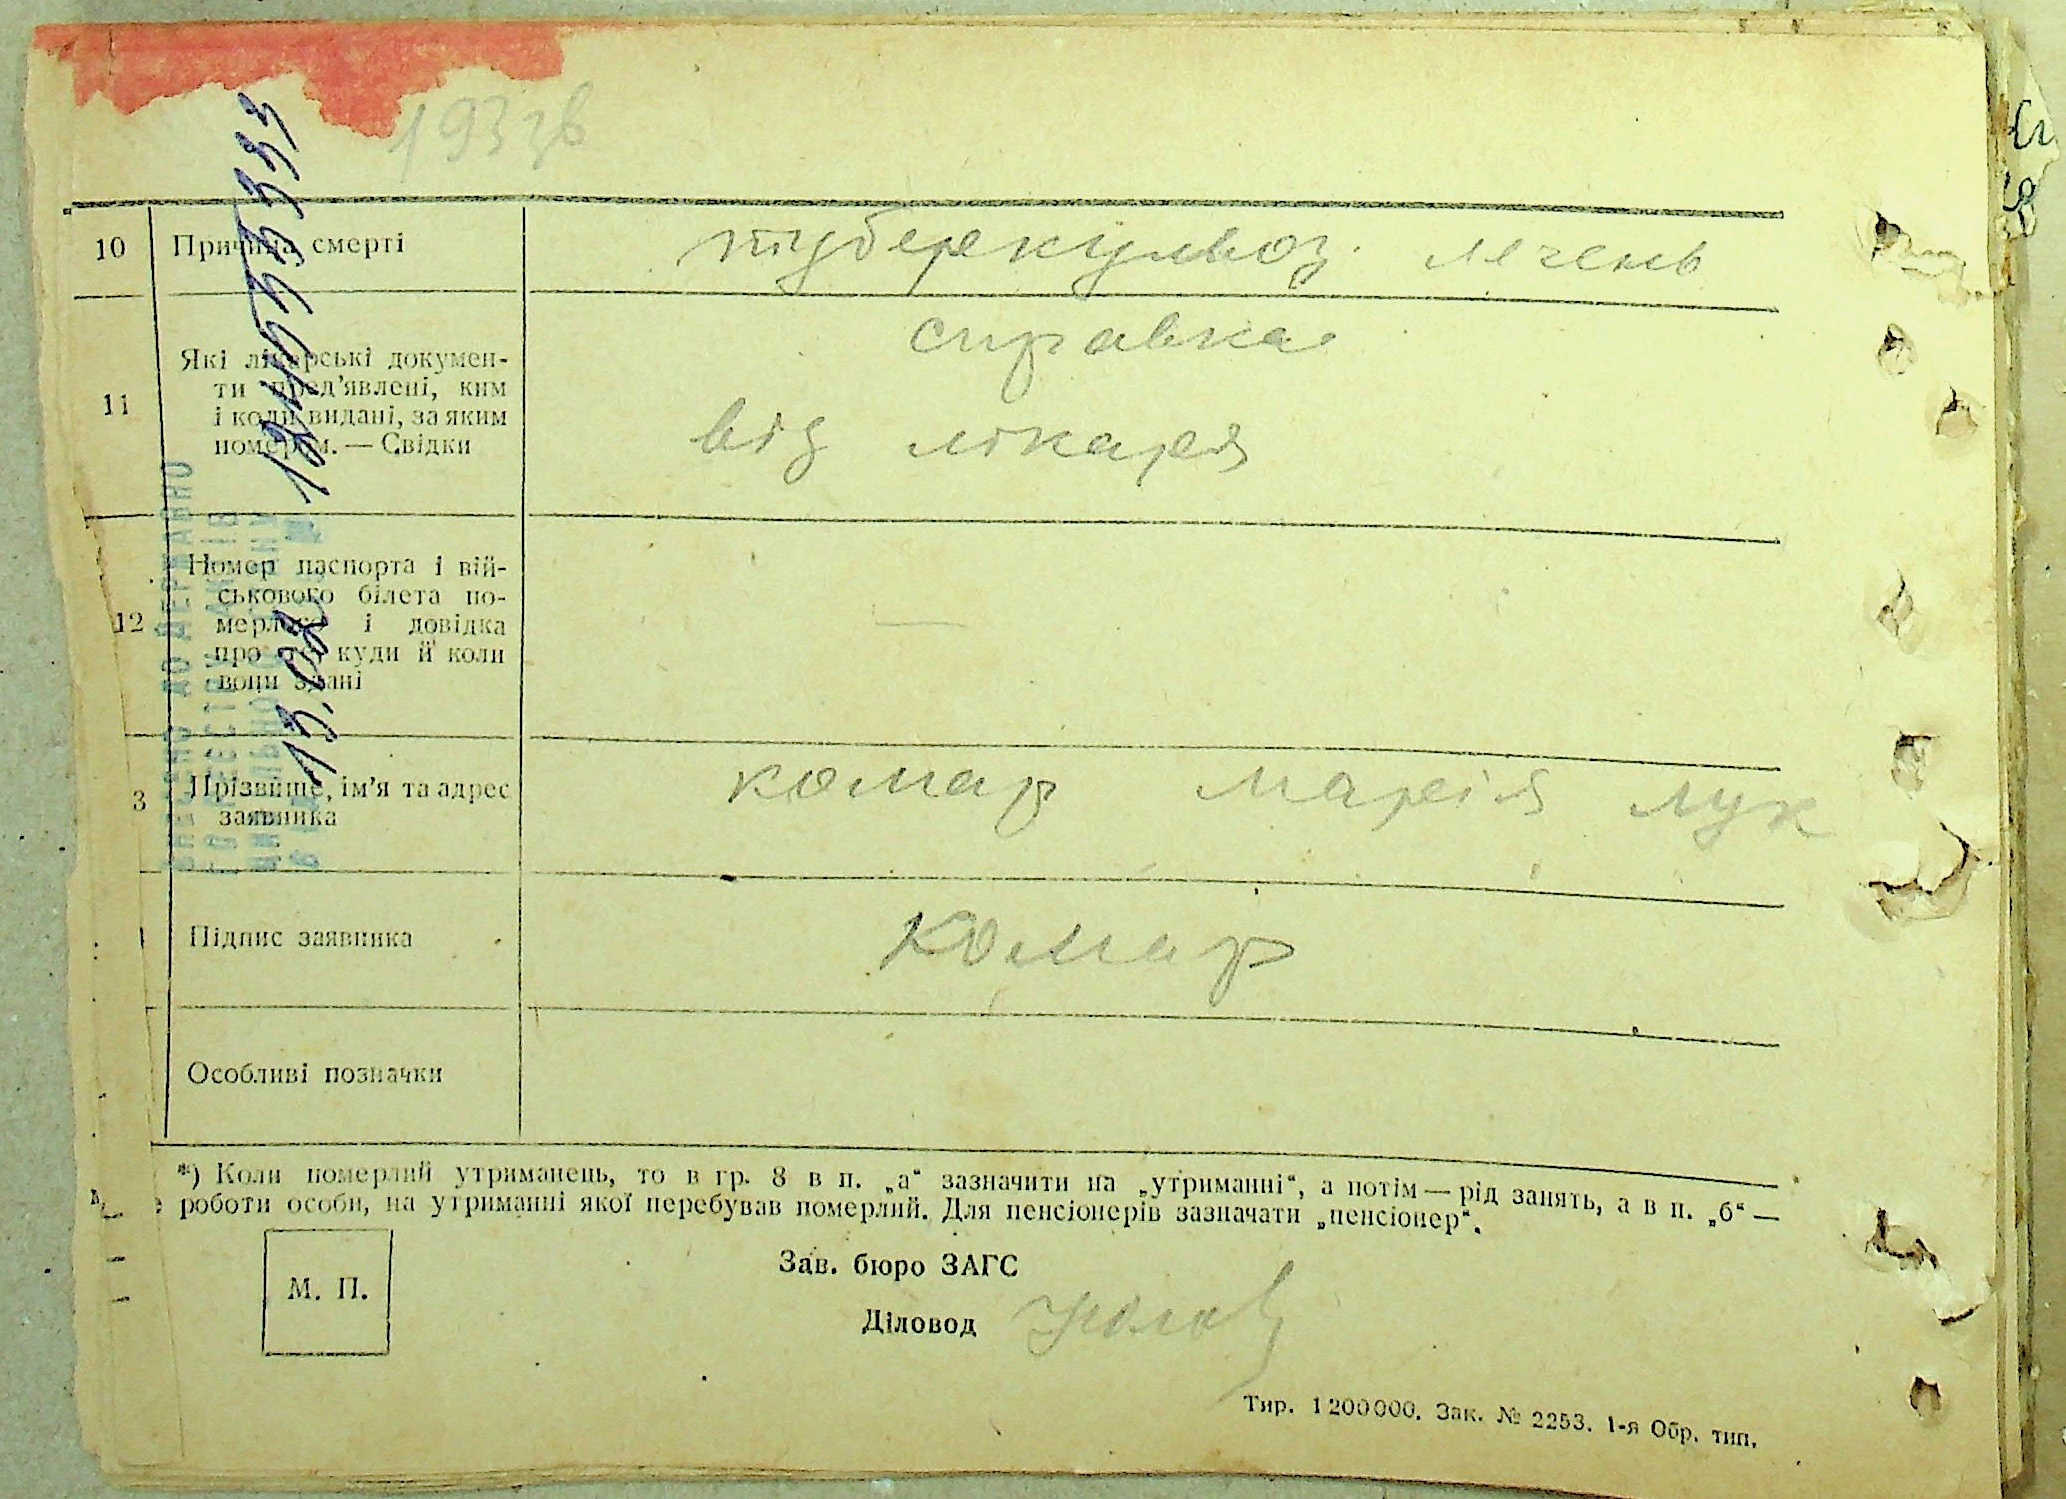 193 зв
10 Причина смерті туберкульоз легень
11 Які лікарські докумен-
ти пред'явлені, ким
і коли видані, за яким
номером. — Свідки
справка
від лікаря
12 Номер паспорта і вій-
ськового білета по-
мерлого і довідка
про те, куди й коли
вони здані
—
3 Прізвище, ім'я та адрес
заявника
комар марія лук
Підпис заявника Комар
Особливі позначки
*) Коли померлий утриманець, то в гр. 8 в п. „а“ зазначити на „утриманні“, а потім — рід занять, а в п. „б“ —
роботи особи, на утриманні якої перебував померлий. Для пенсіонерів зазначати „пенсіонер“.
М. П.
Зав. бюро ЗАГС
Діловод
Тир. 1200000. Зак. № 2253. 1-я Обр. тип.